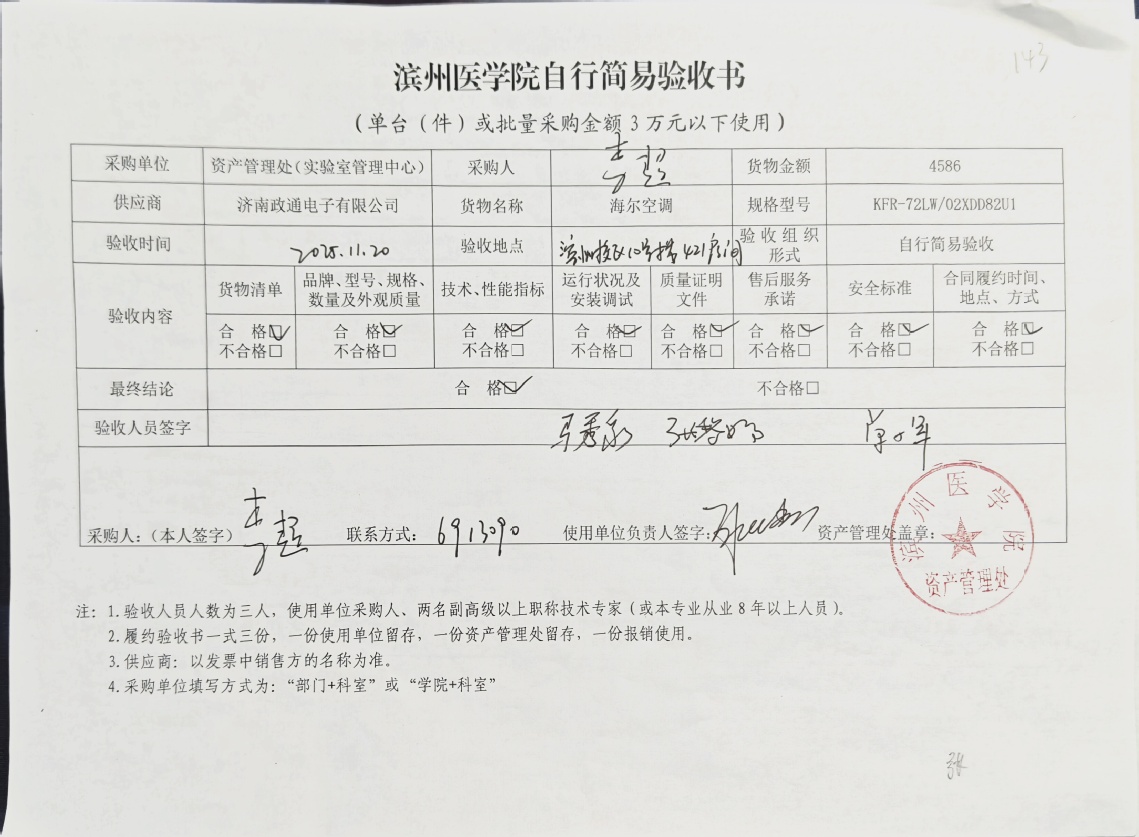 143
滨州医学院自行简易验收书
（单台（件）或批量采购金额3万元以下使用）
采购单位 资产管理处（实验室管理中心） 采购人 李超 货物金额 4586
供应商 济南政通电子有限公司 货物名称 海尔空调 规格型号 KFR-72LW/02XDD82U1
验收时间 2025.11.20 验收地点 滨州校区10号楼421房间 验收组织形式 自行简易验收
验收内容 货物清单 品牌、型号、规格、数量及外观质量 技术、性能指标 运行状况及安装调试 质量证明文件 售后服务承诺 安全标准 合同履约时间、地点、方式
合 格☑ 合 格☑ 合 格☑ 合 格☑ 合 格☑ 合 格☑ 合 格☑ 合 格☑
不合格□ 不合格□ 不合格□ 不合格□ 不合格□ 不合格□ 不合格□ 不合格□
最终结论 合 格☑ 不合格□
验收人员签字
采购人：（本人签字） 李超 联系方式： 6913090 使用单位负责人签字： 资产管理处盖章：
滨州医学院
资产管理处
注：1.验收人员人数为三人，使用单位采购人、两名副高级以上职称技术专家（或本专业从业8年以上人员）。
2.履约验收书一式三份，一份使用单位留存，一份资产管理处留存，一份报销使用。
3.供应商：以发票中销售方的名称为准。
4.采购单位填写方式为：“部门+科室”或“学院+科室”
张